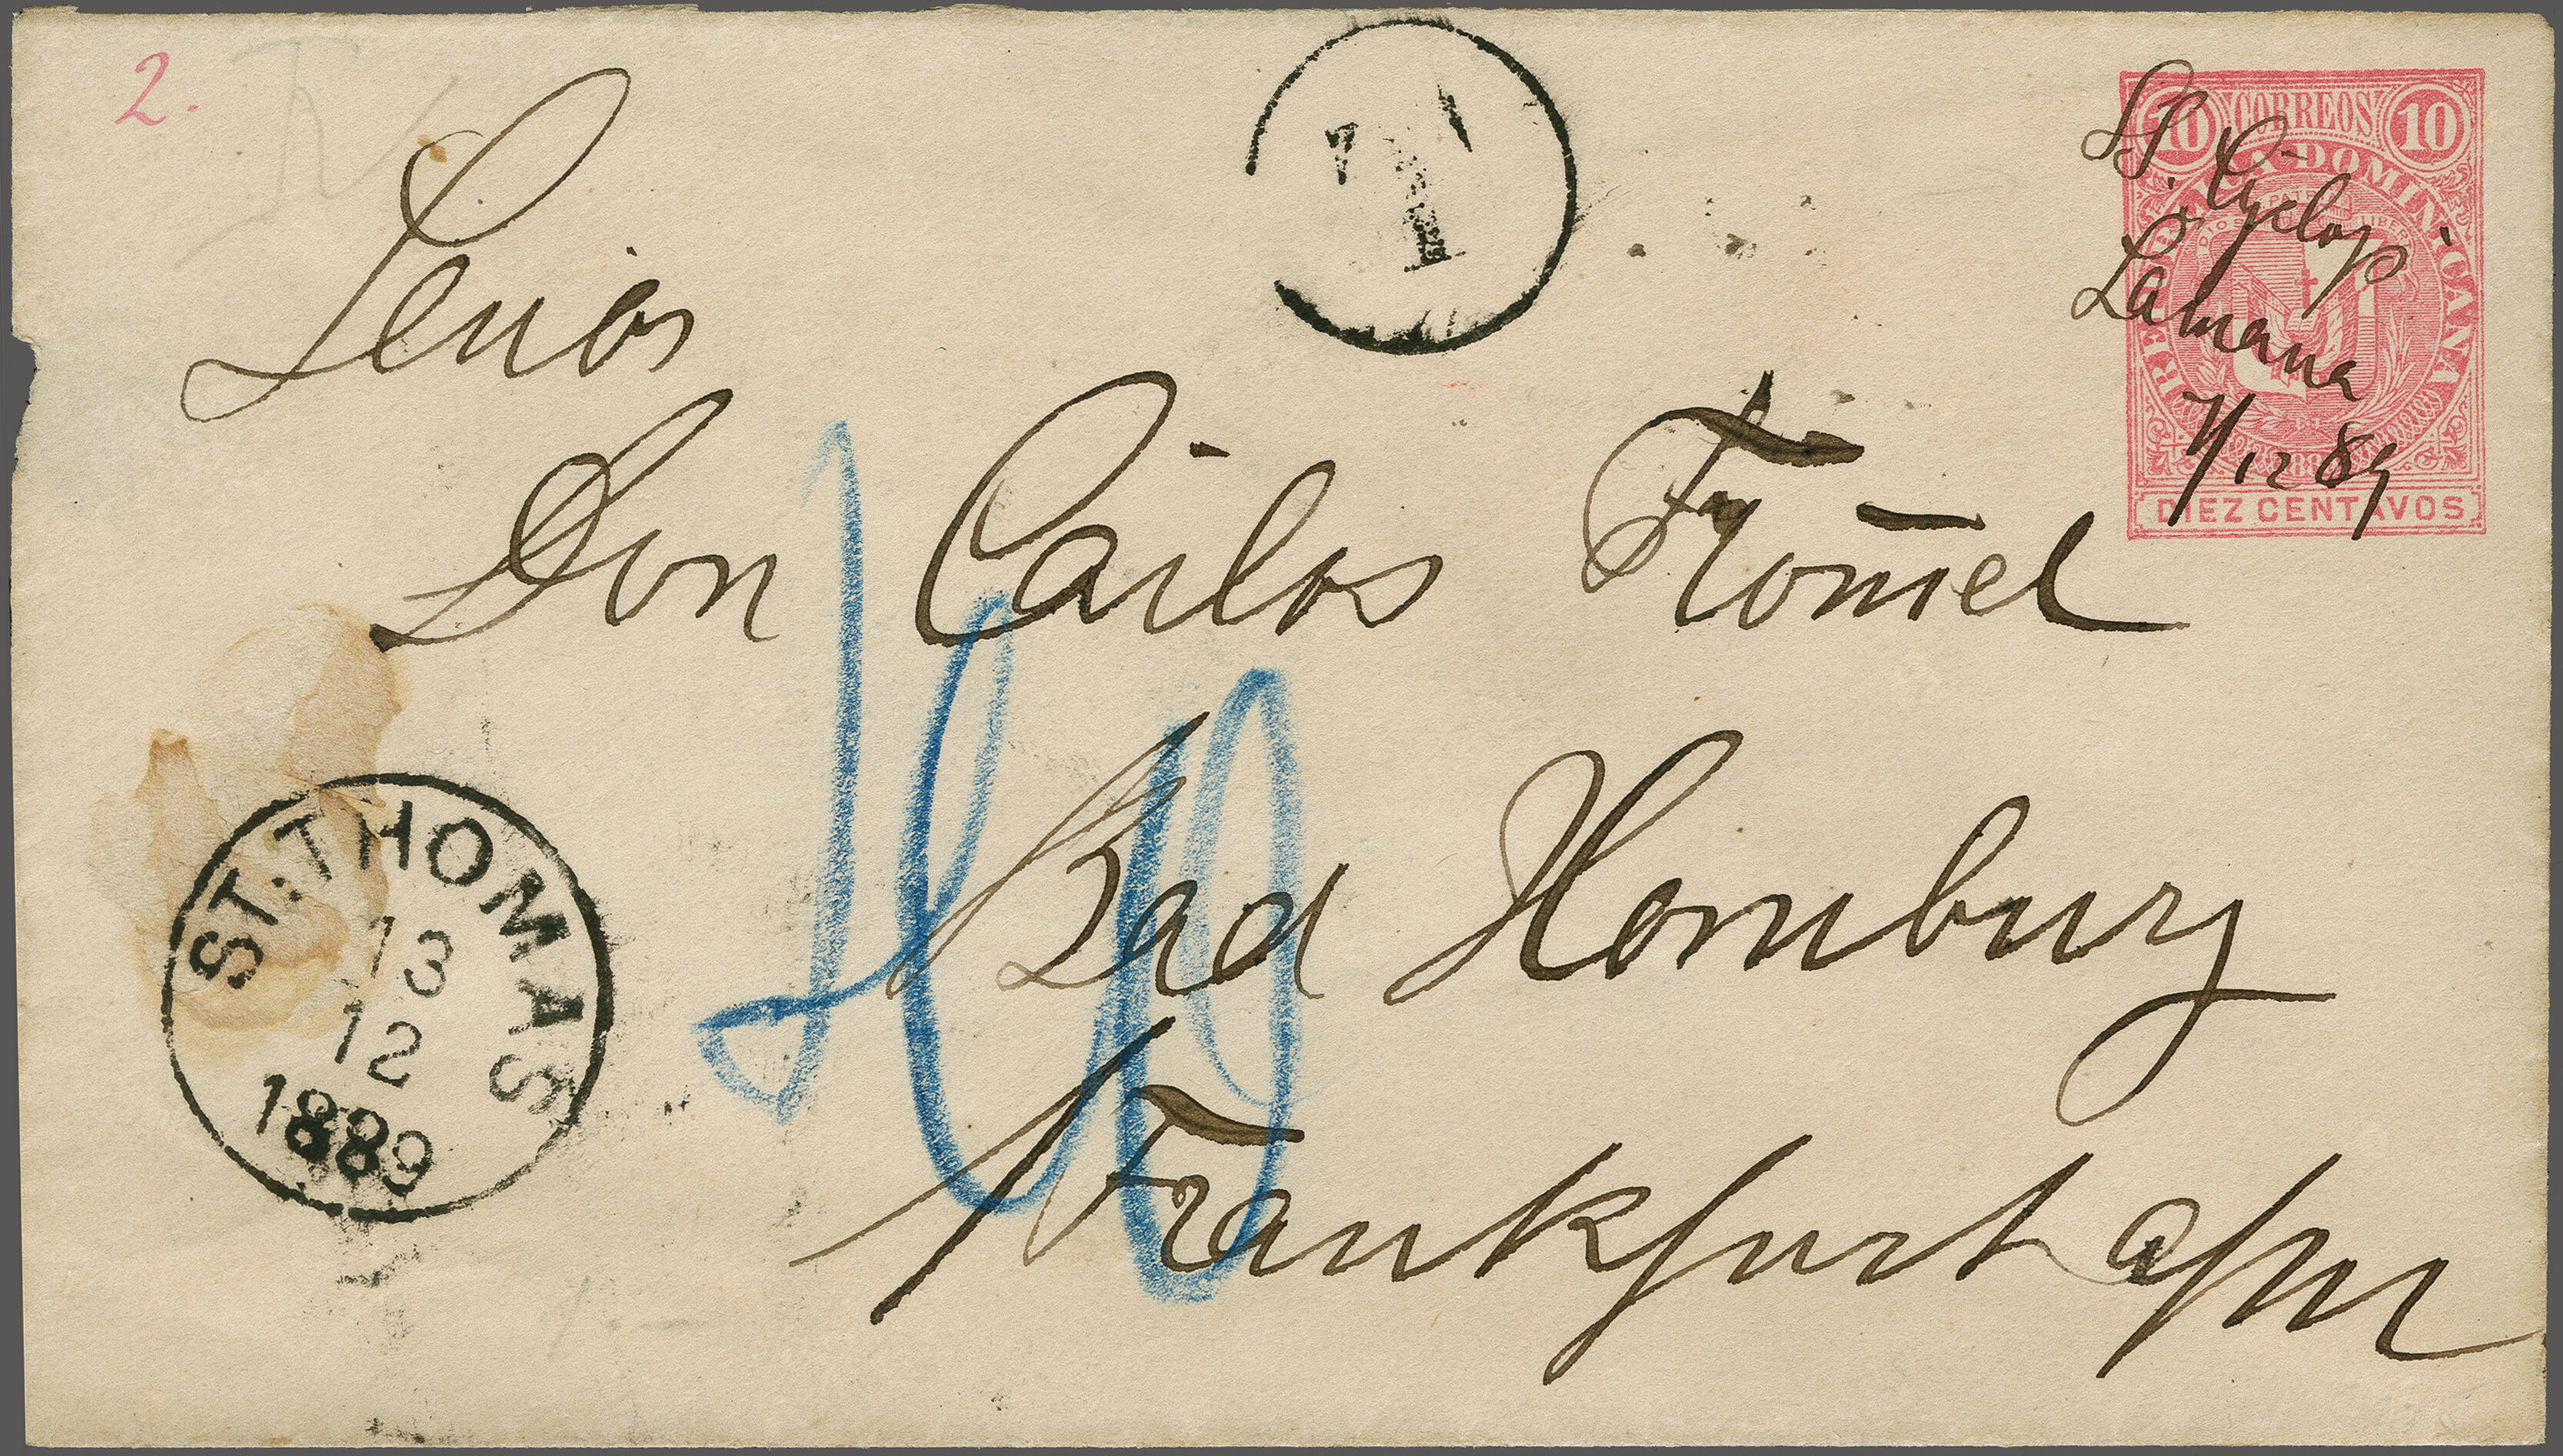 2.
T
10 CORREOS 10
REPUBLICA DOMINICANA
DIEZ CENTAVOS
SS. Cyclop
Lamana
7/12 89
Señor
Don Carlos
Bad Homburg
Frankfurt a/m
40
ST. THOMAS
13
12
1889